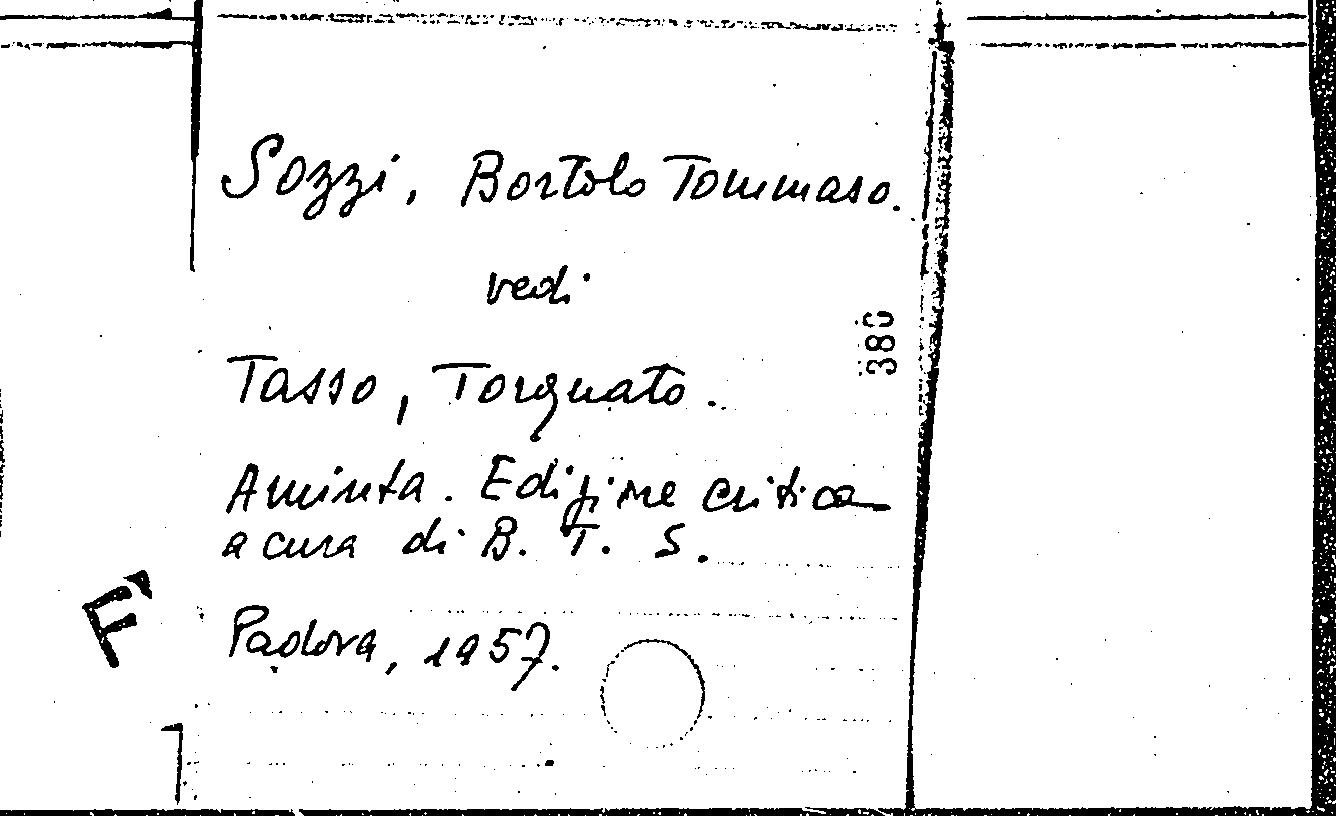 Sozzi, Bortolo Tommaso.
vedi
380
Tasso, Torquato.
Aminta. Edizione critica
a cura di B. T. S.
F
Padova, 1957.